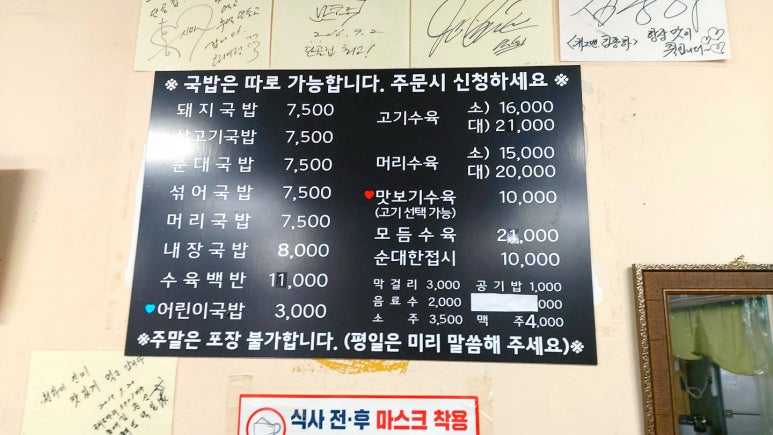 ※ 국밥은 따로 가능합니다. 주문시 신청하세요 ※
돼지국밥 7,500
살고기국밥 7,500
순대국밥 7,500
섞어국밥 7,500
머리국밥 7,500
내장국밥 8,000
수육백반 11,000
어린이국밥 3,000
고기수육 소) 16,000
대) 21,000
머리수육 소) 15,000
대) 20,000
맛보기수육 10,000
(고기 선택 가능)
모듬수육 21,000
순대한접시 10,000
막걸리 3,000 공기밥 1,000
음료수 2,000 000
소주 3,500 맥주 4,000
※주말은 포장 불가합니다. (평일은 미리 말씀해 주세요)※
식사 전·후 마스크 착용